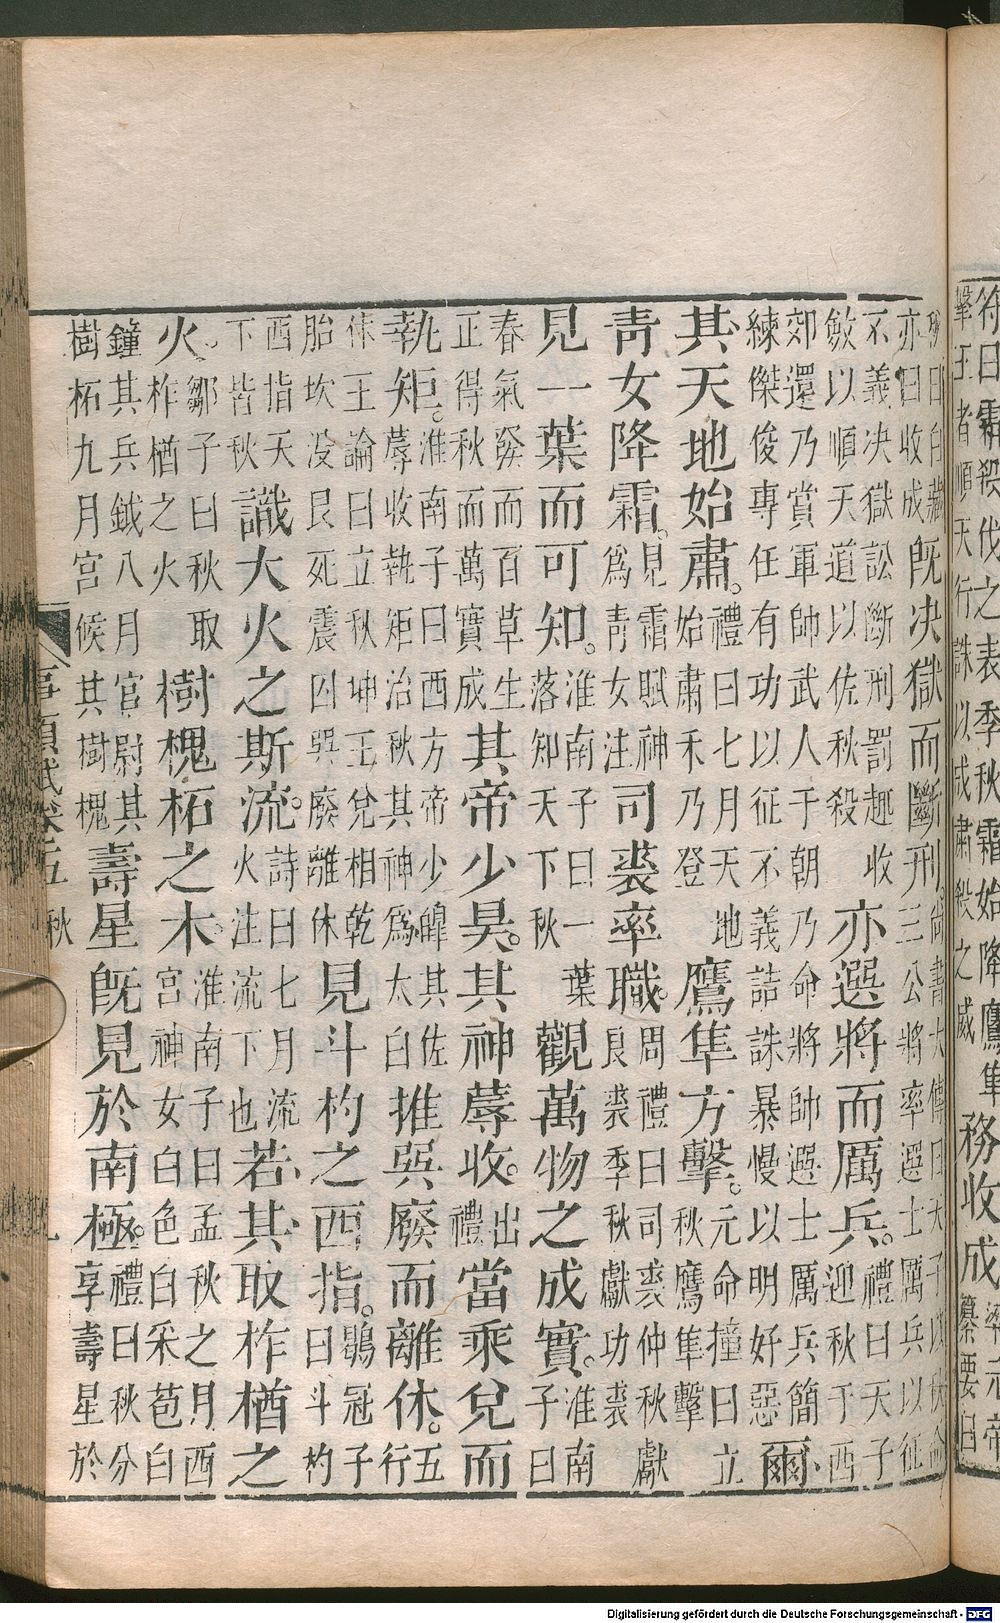 符曰霜殺伐之表季秋霜始降鷹隼擊王者順天行誅以成肅殺之威務收成梁元帝纂要曰
秋曰白藏亦曰收成既決獄而斷刑。尚書大傳曰天子以伏命三公將率選士厲兵以征
不義決獄訟斷刑罰趣收斂以順天道以佐秋殺亦選將而厲兵。禮曰天子迎秋于西
郊還乃賞軍帥武人于朝乃命將帥選士厲兵簡練傑俊專任有功以征不義詰誅暴慢以明好惡爾
其天地始肅。禮曰七月天地始肅禾乃登鷹隼方擊。元命撞曰立秋鷹隼擊
青女降霜。見霜賦神為青女注司裘率職。周禮曰司裘仲秋獻良裘季秋獻功裘
見一葉而可知。淮南子曰一葉落知天下秋觀萬物之成實。淮南子曰
春氣發而百草生正得秋而萬寶成其帝少昊。其神蓐收。出禮當乘兌而
執矩。淮南子曰西方帝少皞其佐蓐收執矩治秋其神為太白推巽廢而離休。五行
休王論曰立秋坤王兌相乾胎坎没艮死震囚巽廢離休見斗杓之西指。鶡冠子曰斗杓
酉指天下皆秋識大火之斯流。詩曰七月流火注流下也若其取柞楢之
火。鄒子曰秋取柞楢之火樹槐柘之木。淮南子曰孟秋之月西宮神女白色白采苞白
鐘其兵鉞八月官尉其樹柘九月宮候其樹槐壽星既見於南極。禮曰秋分享壽星於
事類賦卷五 秋 九
Digitalisierung gefördert durch die Deutsche Forschungsgemeinschaft - DFG